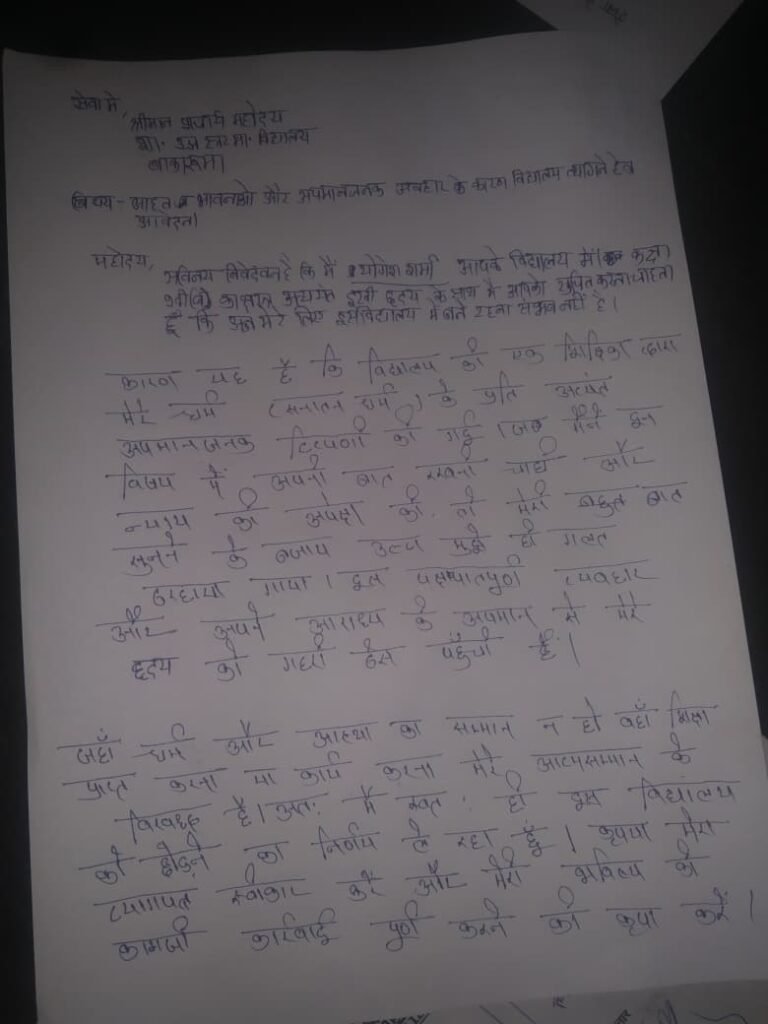 सेवा मे,
श्रीमान प्राचार्य महोदय
शा. उ. मा. विद्यालय
बाकारूमा।
विषय - आहत भावनाओ और अपमानजनक व्यवहार के कारण विद्यालय त्यागने हेतु
आवेदन।
महोदय,
सविनय निवेदन है कि मैं योगेश शर्मा आपके विद्यालय में कक्षा
का छात्र हृदय के साथ मै आपको सूचित करना चाहता
हूँ कि अब मेरे लिए इस विद्यालय मे बने रहना संभव नहीं है।
कारण यह है कि विद्यालय की एक शिक्षिका द्वारा
मेरे धर्म (सनातन धर्म) के प्रति अत्यंत
अपमानजनक टिप्पणी की गई। जब मैने इन
विषय में अपनी बात रखनी चाही और
न्याय की अपेक्षा की, तो मेरी बात
सुनने के बजाय उल्टा मुझे ही गलत
ठहराया गाया। इस पक्षपातपूर्ण व्यवहार
और अपने आराध्य के अपमान से मेरे
हृदय को गहरी ठेस पहुँची है।
जहाँ धर्म और आस्था का सम्मान न हो वहाँ शिक्षा
प्राप्त करना या कार्य करना मेरे आत्मसम्मान के
है। अतः मै स्वत: ही इस विद्यालय
को छोड़ने का निर्णय ले रहा हूँ। कृपया मेरा
त्यागपत्र स्वीकार करे और मेरी भविष्य की
कागजी कार्रवाई पूर्ण करने की कृपा करें।